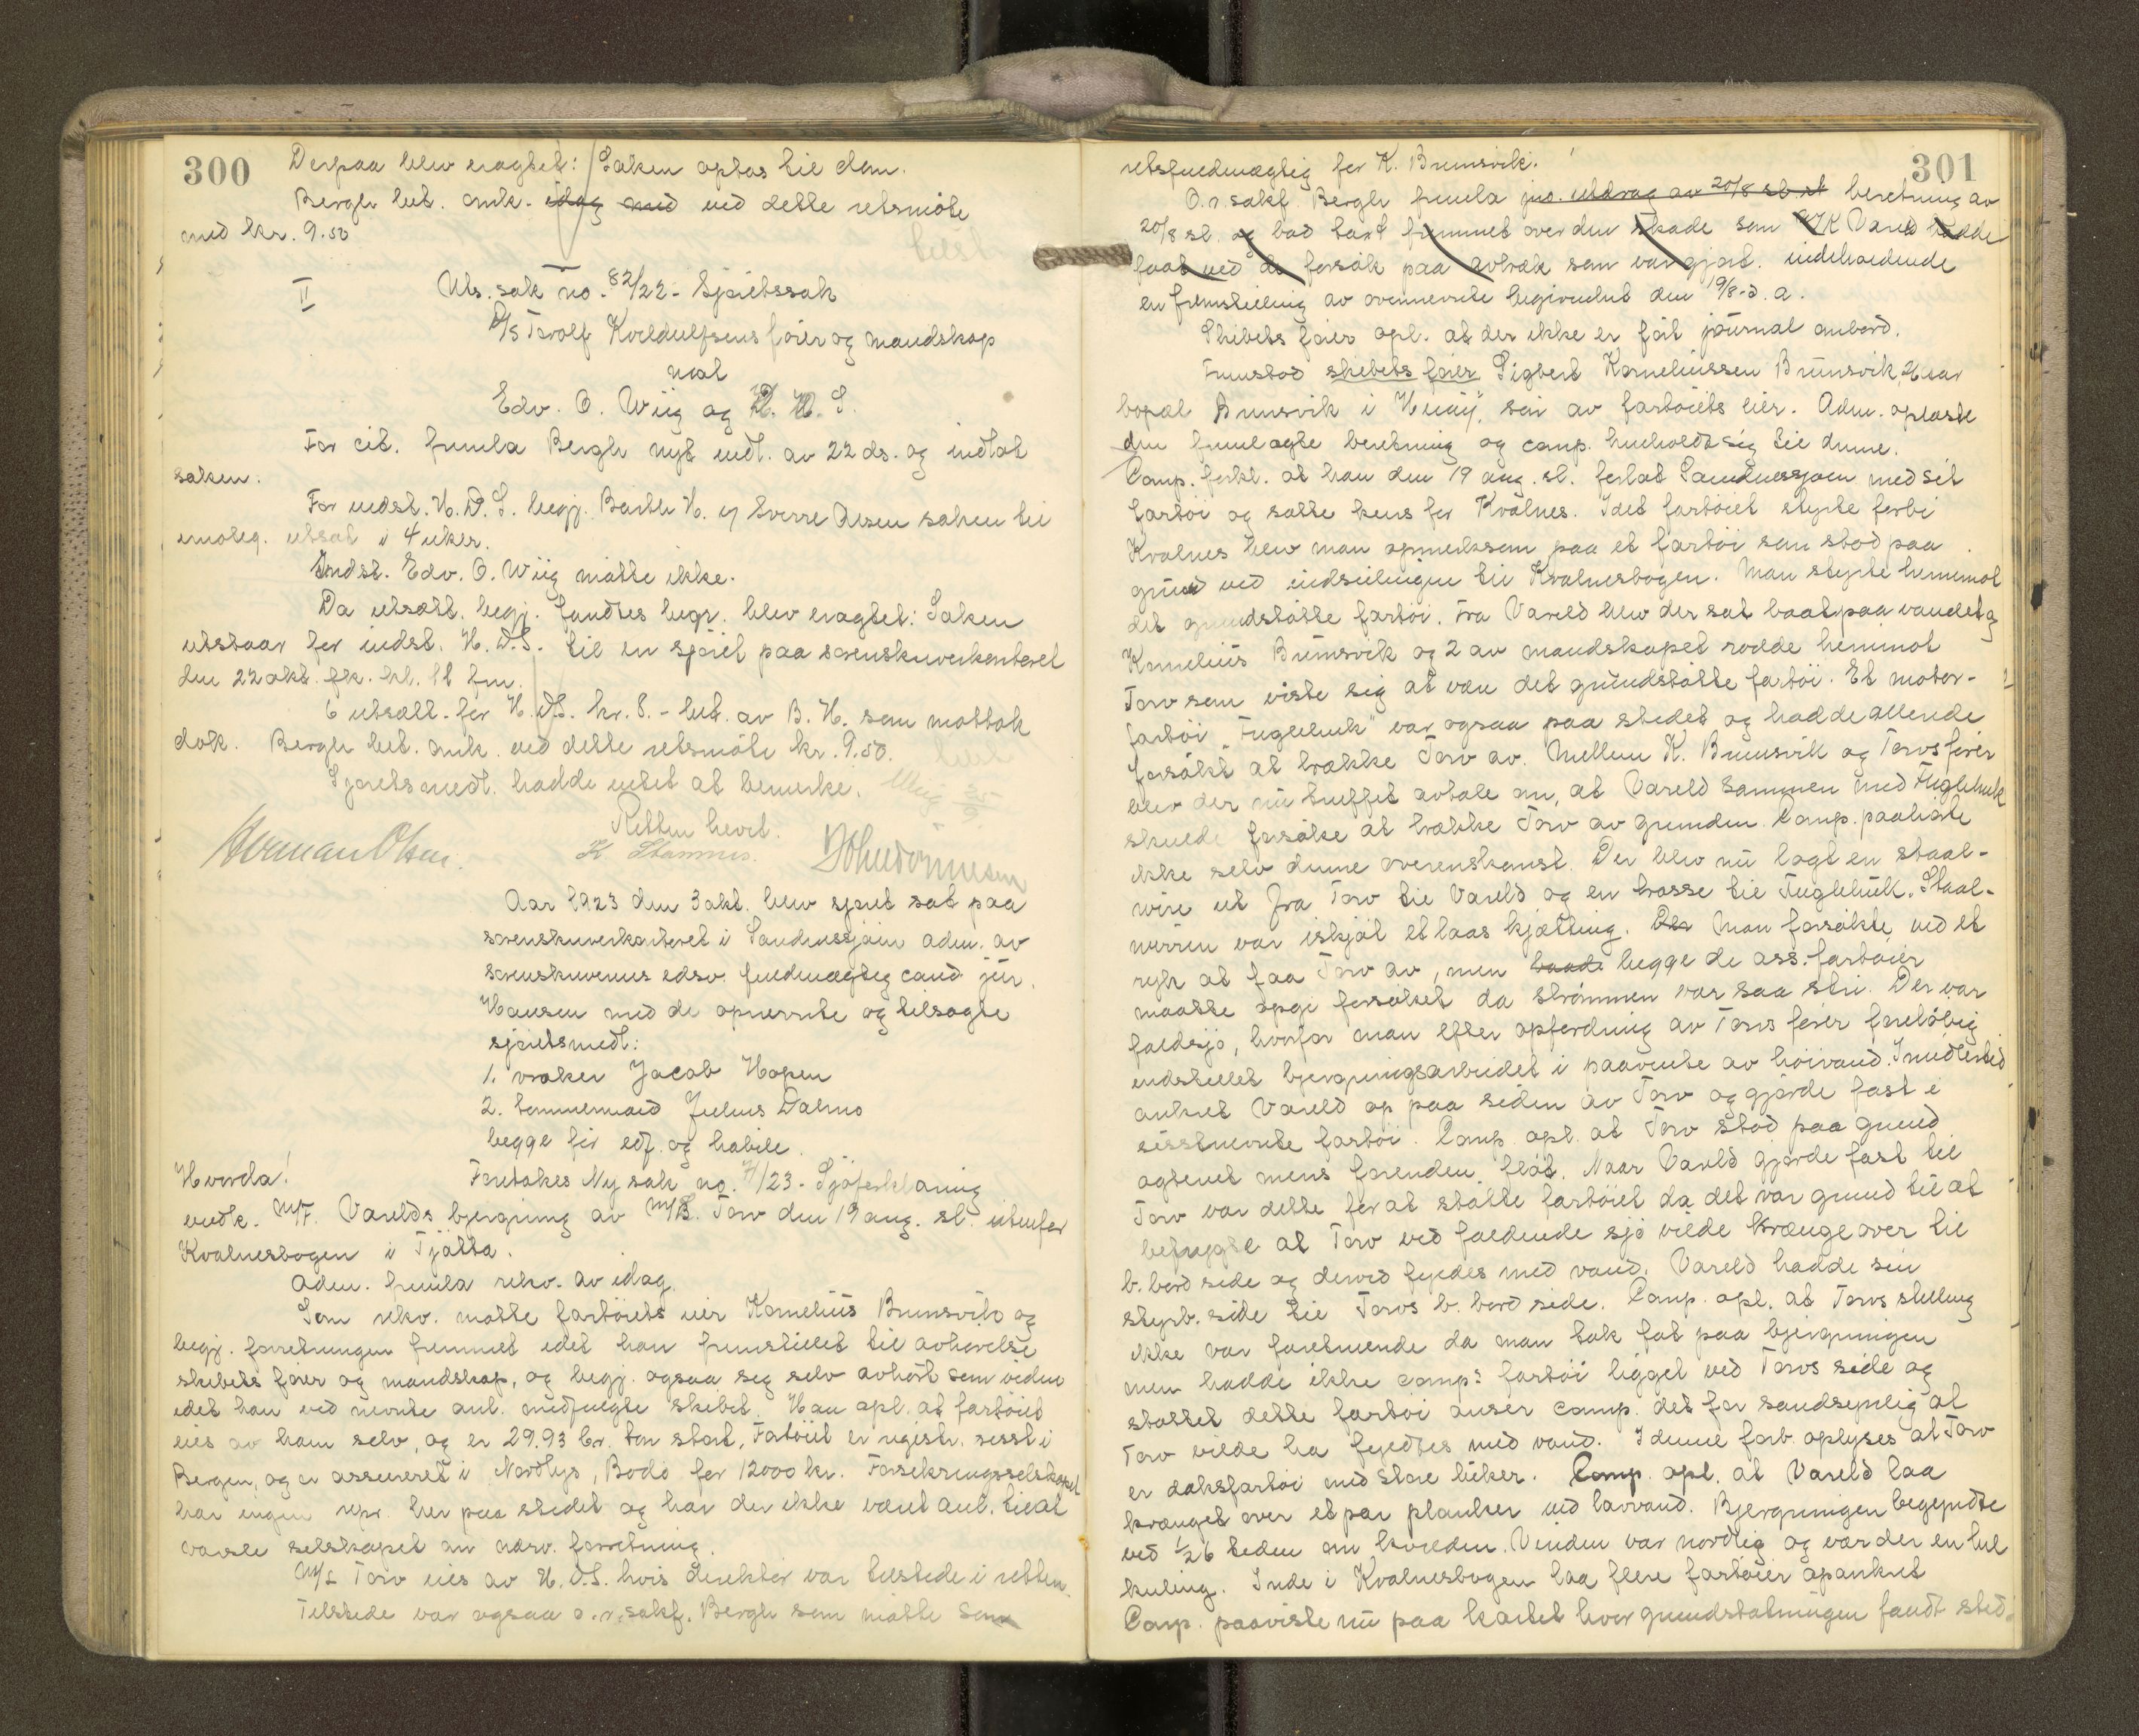 300
Derpaa blev eragtet: Saken optas til dom.
Bergh bet. ank. idag med ved dette retsmöte
med kr. 9.50
II
Uts. sak no. 82/22 - Sjöretssak
D/S Torolf Kveldulfsens förer og mandskap
mot
Edv. O. Wiig og H. D. S.
For cit. fremla Bergh nyt indl. av 22 ds. og indlot
saken.
For indst. H. D. S. begj. Bartle H. og Sverre Olsen saken til
imøteg. utsat i 4 uker.
Indst. Edv. O. Wiig mötte ikke.
Da utsætt. begj. fandtes begr. blev eragtet: Saken
utstaar for indst. H. D. S. til en sjöret paa sorenskriverkontoret
den 22 okt. fk. kl. 11 fm.
6 utsætt. for H. D. S. kr. 8.- bet. av B. H. som mottok
dok. Bergh bet. ank. ved dette retsmöte kr. 9.50.
Sjöretsmedl. hadde intet at bemerke.
Retten hevet.
Herman Olsen.
Aar 1923 den 3 okt. blev sjöret sat paa
sorenskriverkontoret i Sandnessjöen adm. av
sorenskriverens edsv. fuldmægtig cand. jur.
Hansen med de opnevnte og tilsagte
sjöretsmedl:
1. vraker Jacob Hopen
2. tømmermand Julius Dalmo
begge för edf. og habile.
Hvorda!
Foretokes Ny sak no. 7/23 - Sjöforklaring
vedk. M/F. Varelds bjergning av M/S. Torv den 19 aug. sl. utenfor
Kvalnesbogen i Tjötta.
Adm. fremla rekv. av idag.
Som rekv. mötte fartöiets eier Kornelius Brunsvik og
begj. forretningen fremmet idet han fremstillet til avhörelse
skibets förer og mandskap, og begj. ogsaa sig selv avhört som vidne
idet han ved nevnte anl. medfulgte skibet. Han opl. at fartöiet
eies av ham selv, og er 29.93 br. ton stort, Fartöiet er registr. sisst i
Bergen, og er assureret i Nordlys, Bodö for 12000 kr. Forsikringsselskapet
har ingen repr. her paa stedet og har der ikke været anl. til at
varsle selskapet om nærv. forretning.
M/S Torv eies av H. D. S. hvis direktör var tilstede i retten.
Tilstede var ogsaa o.r.sakf. Bergh som mötte som
301
retsfuldmægtig for K. Brunsvik.
O.r.sakf Bergh fremla pro. utdrag av 20/8 sl. et beretning av
20/8 sl. og bad tart fremmet over den skade som M/K Vareld hadde
faat ved de forsök paa avtræk som var gjort. indeholdende
en fremstilling av ovennevnte begivenhet den 19/8-d. a.
Skibets förer opl. at der ikke er fört journal ombord.
Fremstod skibets förer Sigbert Korneliussen Brunsvik, aar
bopæl Brunsvik i Herøy, sön av fartöiets eier. Adm. oplæste
den fremlagte beretning og comp. henholdt sig til denne.
Comp. forkl. at han den 19 aug. sl. forlot Sandnessjöen med sit
fartöi og satte kurs for Kvalnes. Idet fartöiet styrte forbi
Kvalnes blev man opmerksom paa et fartöi som stod paa
grund ved indseilingen til Kvalnesbogen. Man styrte henimot
det grundstötte fartöi. Fra Vareld blev der sat baat paa vandet og
Kornelius Brunsvik og 2 av mandskapet rodde henimot
Torv som viste sig at være det grundstötte fartöi. Et motor-
fartöi "Fuglehuk" var ogsaa paa stedet og hadde allerede
forsökt at trække Torv av. Mellem K. Brunsvik og Torvs förer
blev der nu truffet avtale om, at Vareld sammen med Fuglehuk
skulde forsöke at trække Torv av grunden. Comp. paahörte
ikke selv denne overenskomst. Der blev nu lagt en staal-
wire ut fra Torv til Vareld og en trosse til Fuglehuk. Staal-
wiren var iskjöt et laas kjætting. Der Man forsökte ved et
ryk at faa Torv av, men baade begge de ass. fartöier
maatte opgi forsöket da strömmen var saa stri. Der var
faldsjö, hvorfor man efter opfordring av Torvs förer foreløbig
indstillet bjergningsarbeidet i paavente av höivand. Imidlertid
ankret Vareld op paa siden av Torv og gjorde fast i
sisstnevnte fartöi. Comp. opl. at Torv stod paa grund
agterut mens forenden flöt. Naar Vareld gjorde fast til
Torv var dette for at stötte fartöiet da det var grund til at
befrygte at Torv ved faldende sjö vilde krænge over til
b.bord side og derved fyldes med vand. Vareld hadde sin
styrb. side til Torvs b.bord side. Comp. opl. at Torvs stilling
ikke var foretruende da man tok fat paa bjergningen
men hadde ikke comps fartöi ligget ved Torvs side og
stöttet dette fartöi anser comp. det for sandsynlig at
Torv vilde ha fyldtes med vand. I denne forb. oplyses at Torv
er dæksfartöi med store luker. Comp. opl. at Vareld laa
krænget over et par planker ved lavvand. Bjergningen begyndte
ved ½6 tiden om kvelden. Vinden var nordlig og var der en lul
kuling. Inde i Kvalnesbogen laa flere fartöier opankret
Comp. paaviste nu paa kartet hvor grundstøtningen fandt sted.